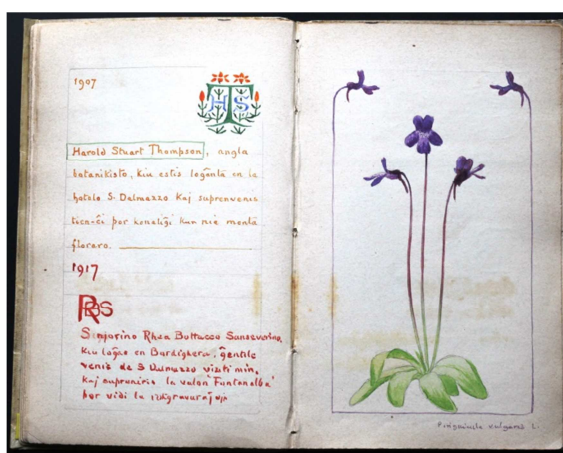 1907
HTS
Harold Stuart Thompson, angla
botanikisto, kiu estis loĝanta en la
hotelo S. Dalmazzo kaj suprenvenis
tien-ĉi por konatiĝi kun nia monta
floraro.
1917
RBS
Sinjorino Rhea Bottacco Sanseverino,
kiu loĝas en Bordighera, ĝentile
venis de S Dalmazzo viziti min,
kaj supreniris la valon Fontanalba
por vidi la
Pinguicula vulgaris L.